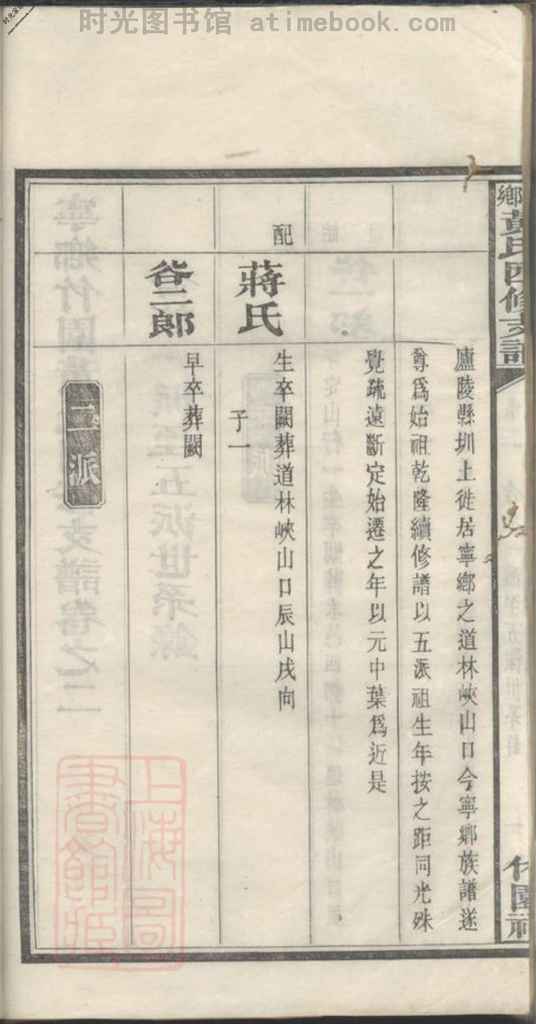 时光图书馆 - atimebook.com
鄉黃氏四修支譜
竹園祠
廬陵縣圳上徙居寧鄉之道林峽山口今寧鄉族譜遂
尊爲始祖乾隆續修譜以五派祖生年按之距同光殊
覺疏遠斷定始遷之年以元中葉爲近是
配
蔣氏
生卒闕葬道林峽山口辰山戌向
子一
谷二郎
早卒葬闕
二派
上海圖書館藏